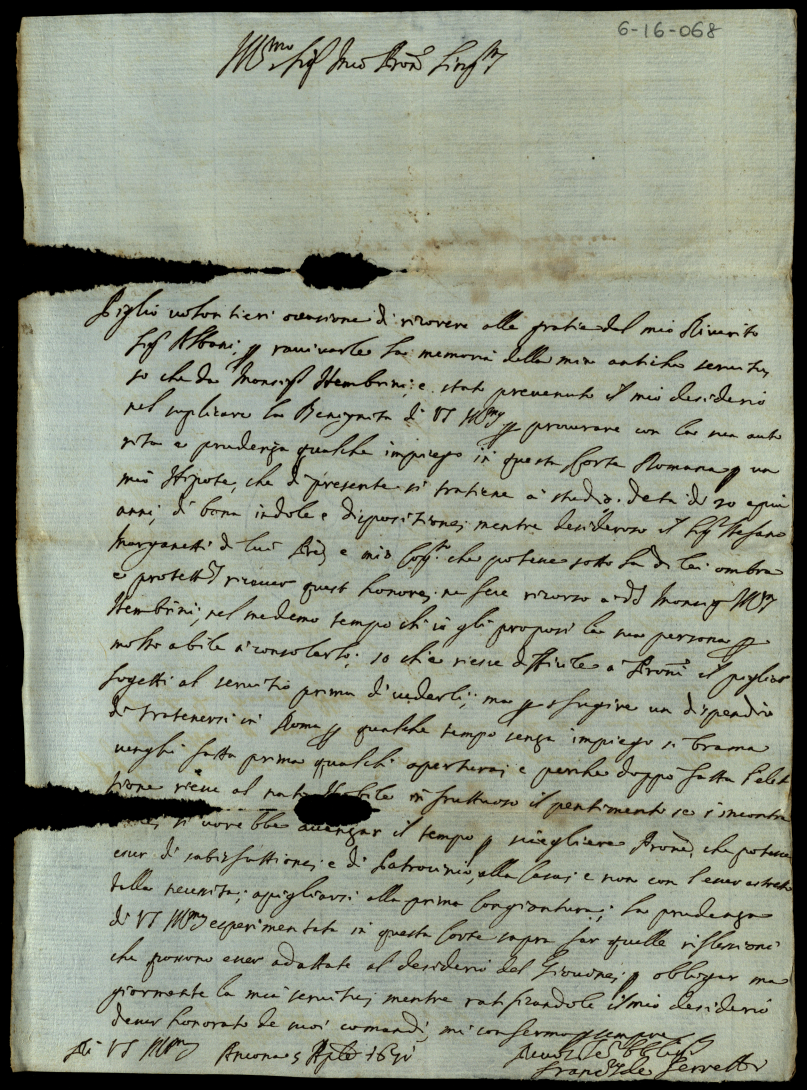 6-16-068
Ill.mo Sig.r mio Pron
Piglio volontieri occasione di ricorere alle gratie del mio Riverito
Sig.r Albani, p ravivarle la memoria della mia anticha servitu,
so che da Monsig.r Hembrini, e, stato prevenuto il mio desiderio
nel suplicare la Benignita di VS Ill.ma p procurare con la sua auto
rita e prudenza qualche impiego in questa Corte Romana p un
mio Nipote, che di presente si tratiene a studio, d'eta di 20 e piu
anni, di bona indole e dispositione, mentre desideroso il Sig.r Stefano
Marganetti di lui Pre e mio che potesse sotto la di lei ombra
e protett.ne ricever quest honore, ne fece ricorso a d.o Monsig.r Ill.mo
Hembrini, nel medemo tempo ch'io gli proposi la sua persona p
molto abile a consolarlo, so che riesce dificile a Proni il pigliar
sogetti al servitio prima di vederli, ma p sfugire un dispendio
di tratenersi in Roma p qualche tempo senza impiego si brama
venghi fatta prima qualche apertura, e perche doppo fatta l'elet
tione riesce al infruttuoso il pentimento se s'incontra
si vorebbe avanzar il tempo p sciegliere Prone, che potesse
esser di sodisfattione, e di Patrocinio, alla Casa, e non con l'esser astretto
dalla necessita, apigliarsi alla prima congiontura, la prudenza
di VS Ill.ma esperimentata in questa Corte sapra far quelle riflessioni
che possono esser adattate al desiderio del Giovone, p obligar ma
giormente la mia servitu, mentre ratificandole il mio desiderio
d'esser honorato de suoi comandi, mi confermo p sempre
Di VS Ill.ma Ancona 5 Aple 1691
Devot.mo et Oblig.mo
Franc.o de Ferretti